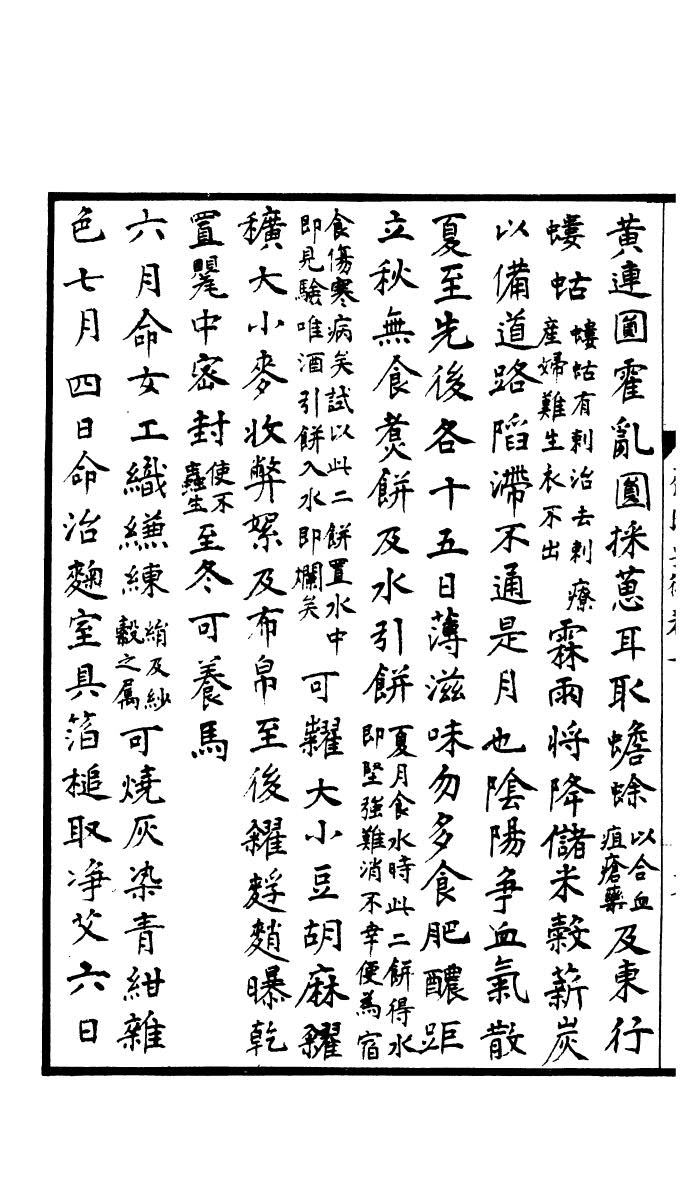 黃連圎霍亂圎採葱耳取蟾蜍以合血疽瘡藥及東行
螻蛄螻蛄有刺治去刺療産婦難生衣不出霖雨将降儲米穀薪炭
以備道路陷滯不通是月也陰陽争血氣散
夏至先後各十五日薄滋味勿多食肥醲距
立秋無食煑餅及水引餅夏月食水時此二餅得水即堅強難消不幸便為宿
食傷寒病矣試以此二餅置水中即見驗唯酒引餅入水即爛矣可糶大小豆胡麻糴
穬大小麥收弊絮及布帛至後糴麩䴬曝乾
置甖中密封使不蟲生至冬可養馬
六月命女工織縑練絹及紗縠之属可燒灰染青紺雜
色七月四日命治麴室具箔槌取净艾六日